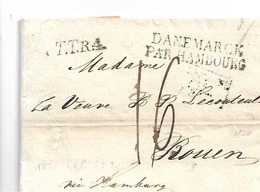 T.T.R.4
DANEMARCK
PAR HAMBOURG
Madame
La Veuve
16
Rouen
via Hamburg